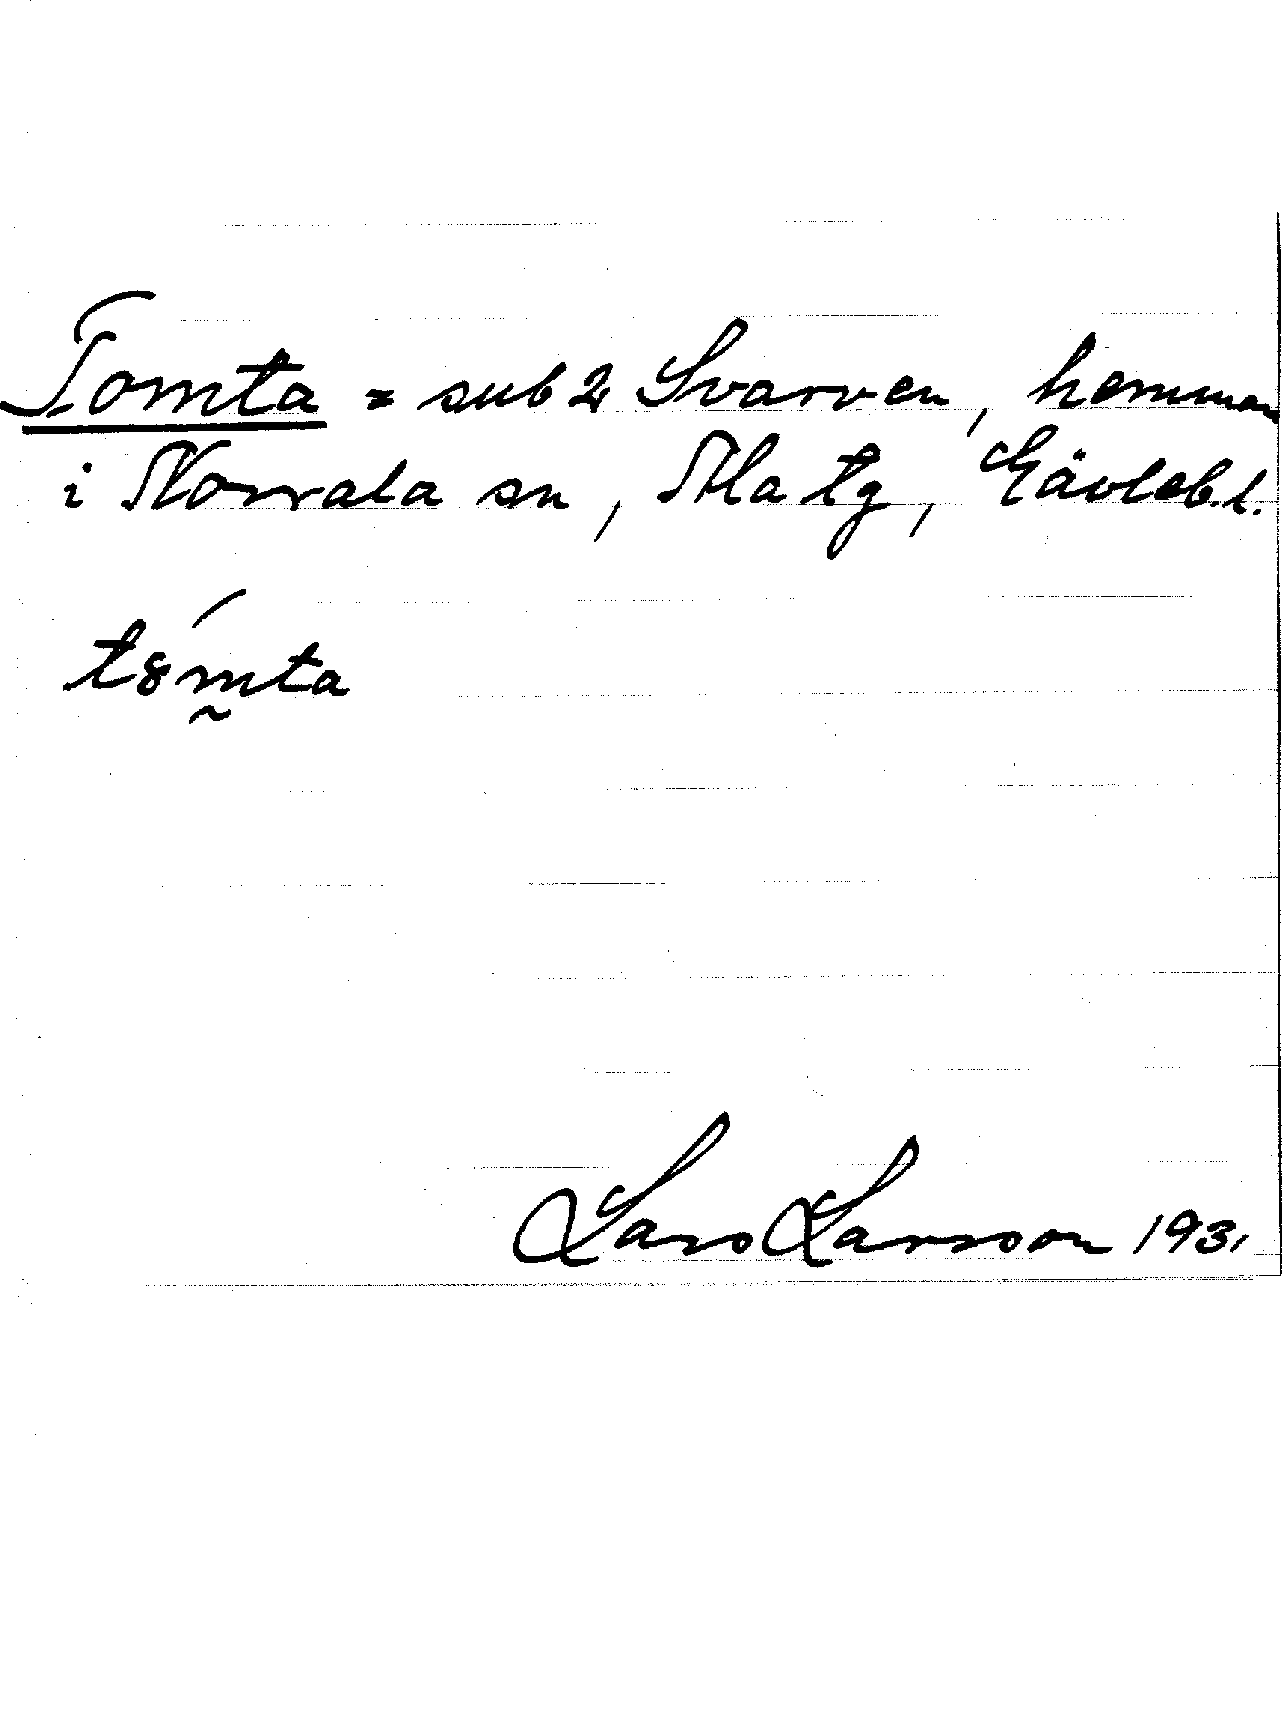 Tomta = sub 2 Svarven, hemman
i Norrala sn, Ala tg, Gävleb.l.
t8́m̰ta
Lars Larsson 1931